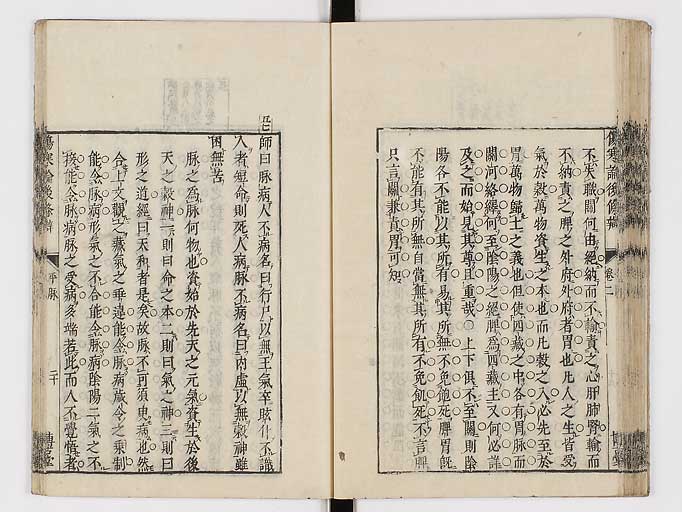 傷寒論後條辨
卷二
不失職關何由絕納而不輸責之心肝肺腎輸而
不納責之脾之外府外府者胃也凡人之生皆受
氣於穀萬物資生之本也而凡穀之入必先至於
胃萬物歸土之義也但使四藏之中各有胃脉而
關河絡繹何至陰陽之絕脾爲四藏主又何必詳
及之而始見其尊且重哉○上下俱不至關則陰
陽各不能以其所有易其所無不免飽死脾胃旣
不能有其所無自當無其所有不免餓死不言脾
只言關兼責胃可知
師曰脉病人不病名曰行尸以無王氣卒眩仆不識
人者短命則死人病脉不病名曰內虛以無穀神雖
困無苦
脉之爲脉何物也資始於先天之元氣資生於後
天之穀神一則曰命之本二則曰氣之神三則曰
形之道經曰天和者是矣故脉不可須臾病也然
合上文觀之藏氣之乖違能令脉病歲令之乘制
能令脉病形氣之不合能令脉病陰陽二氣之不
能令脉病脉之受病多端若此而人不覺悟者
傷寒論後條辨
平脉
二十